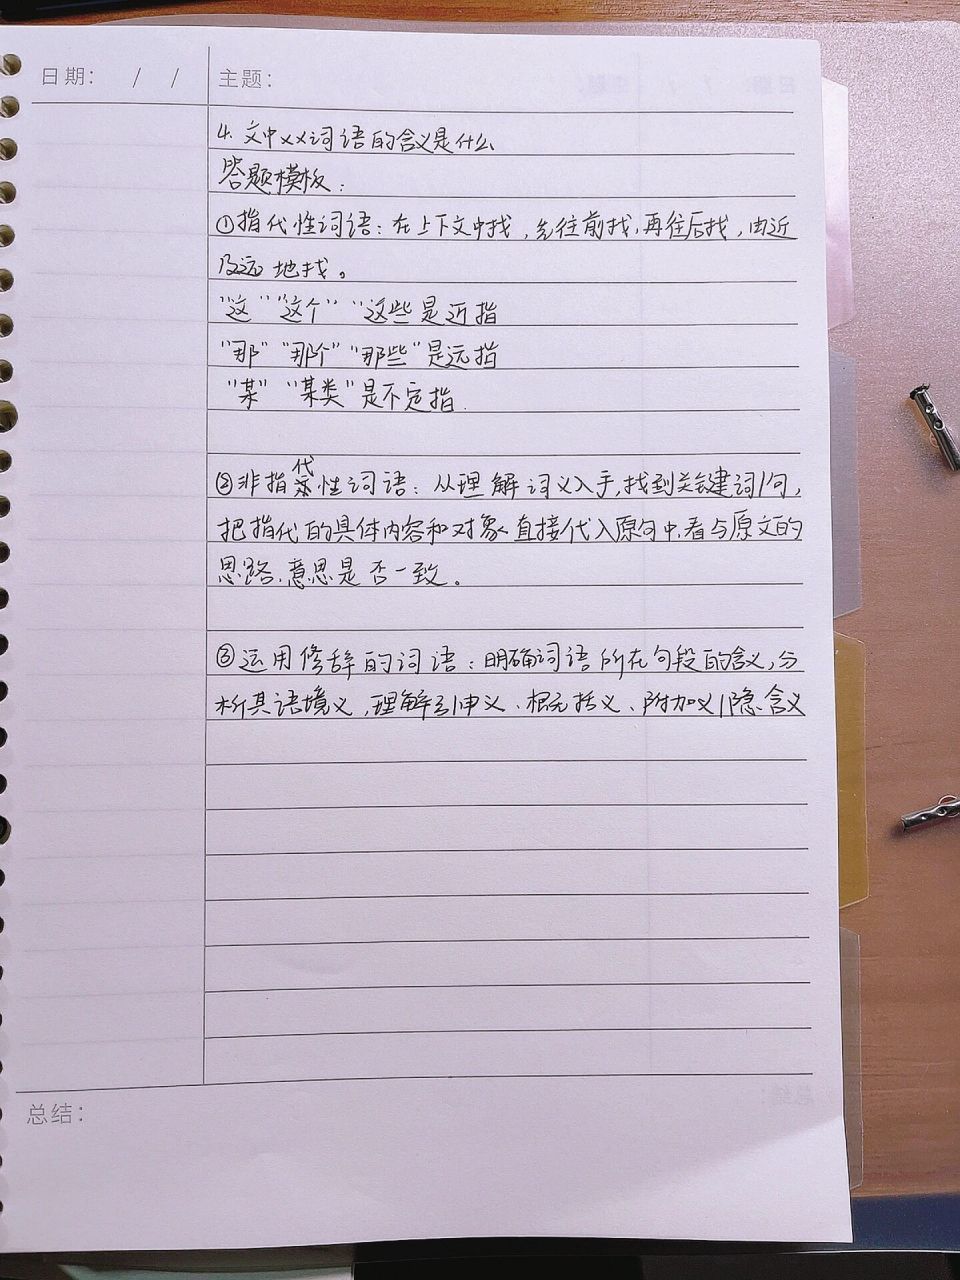 日期： / / 主题：
4. 文中xx词语的含义是什么
答题模板：
①指代性词语：在上下文中找，先往前找，再往后找，由近
及远地找。
“这”“这个”“这些是近指
“那”“那个”“那些”是远指
“某”“某类”是不定指.
②非指代性词语：从理解词义入手，找到关键词/句，
把指代的具体内容和对象直接代入原句中，看与原文的
思路、意思是否一致。
③运用修辞的词语：明确词语所在句段的含义，分
析其语境义，理解引申义、概括义、附加义/隐含义
总结：